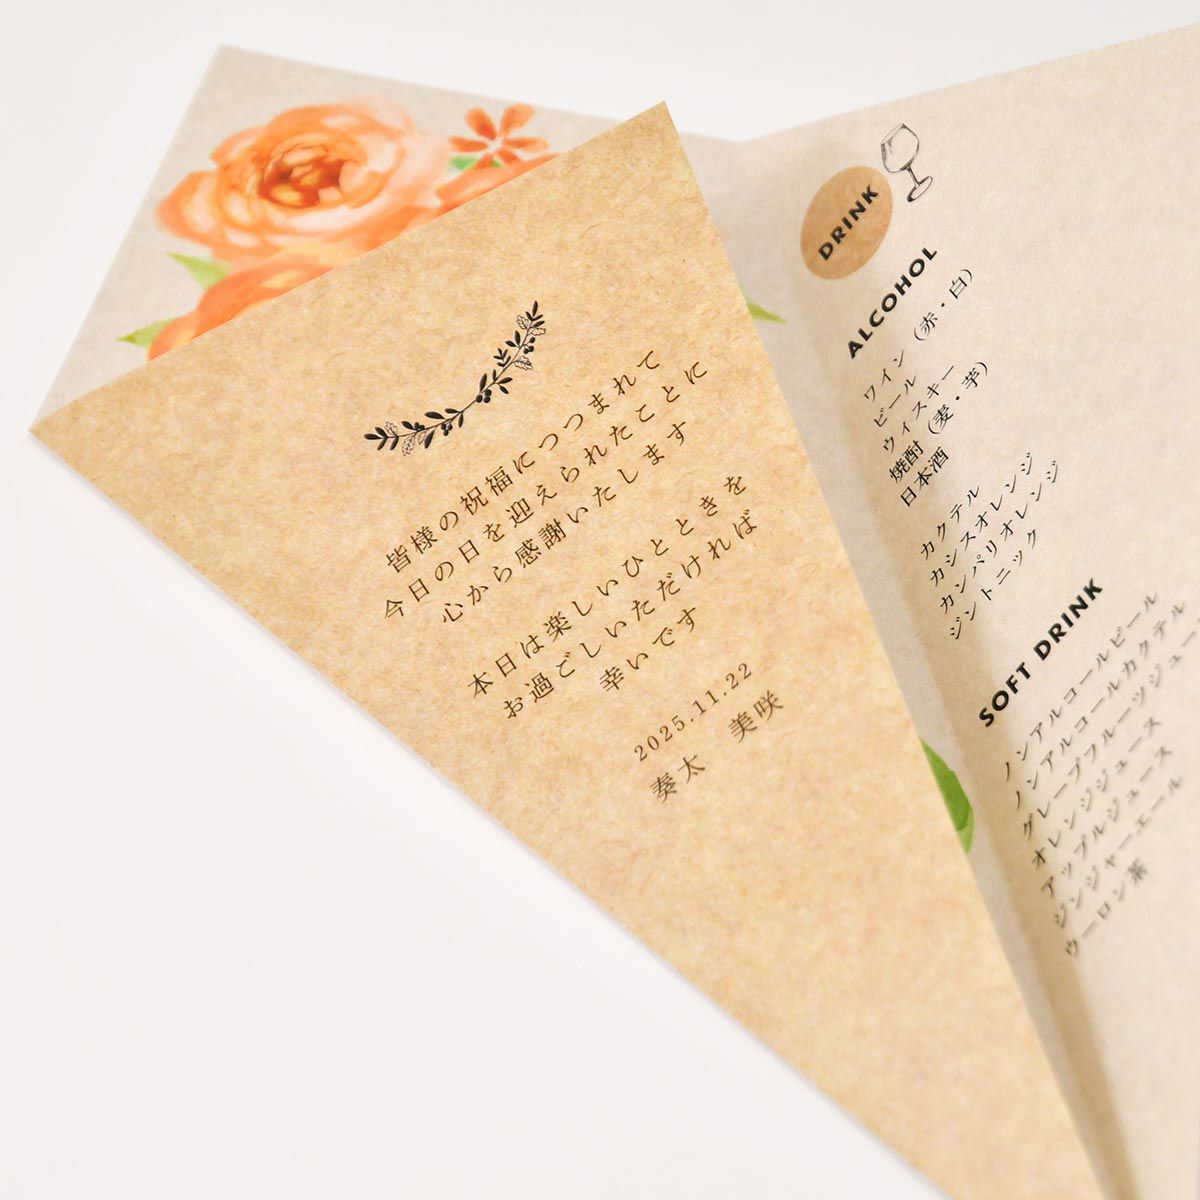 皆様の祝福につつまれて
今日の日を迎えられたことに
心から感謝いたします
本日は楽しいひとときを
お過ごしいただければ
幸いです
2025.11.22
奏太　美咲
DRINK
ALCOHOL
ワイン（赤・白）
ビール
ウィスキー
焼酎（麦・芋）
日本酒
カクテル
カシスオレンジ
カンパリオレンジ
ジントニック
SOFT DRINK
ノンアルコールビール
ノンアルコールカクテル
グレープフルーツジュース
オレンジジュース
アップルジュース
ジンジャーエール
ウーロン茶